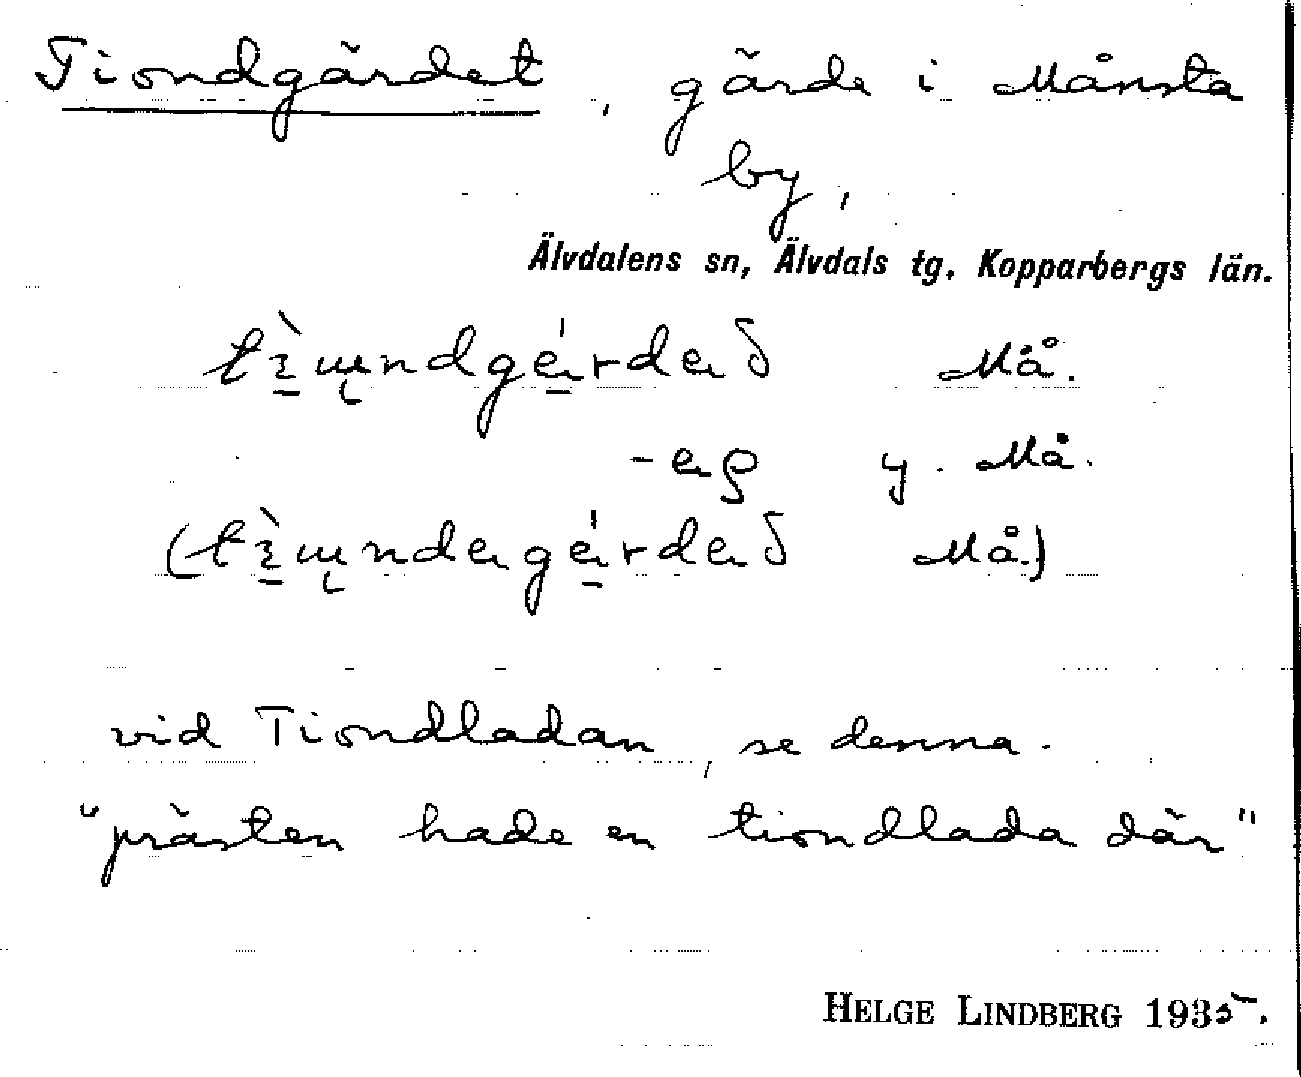 Tiondgärdet, gärde i Månsta
by,
Älvdalens sn, Älvdals tg, Kopparbergs län.
Må.
y. Må.
Må.)
vid Tiondladan, se denna.
"prästen hade en tiondlada där"
HELGE LINDBERG 1935.